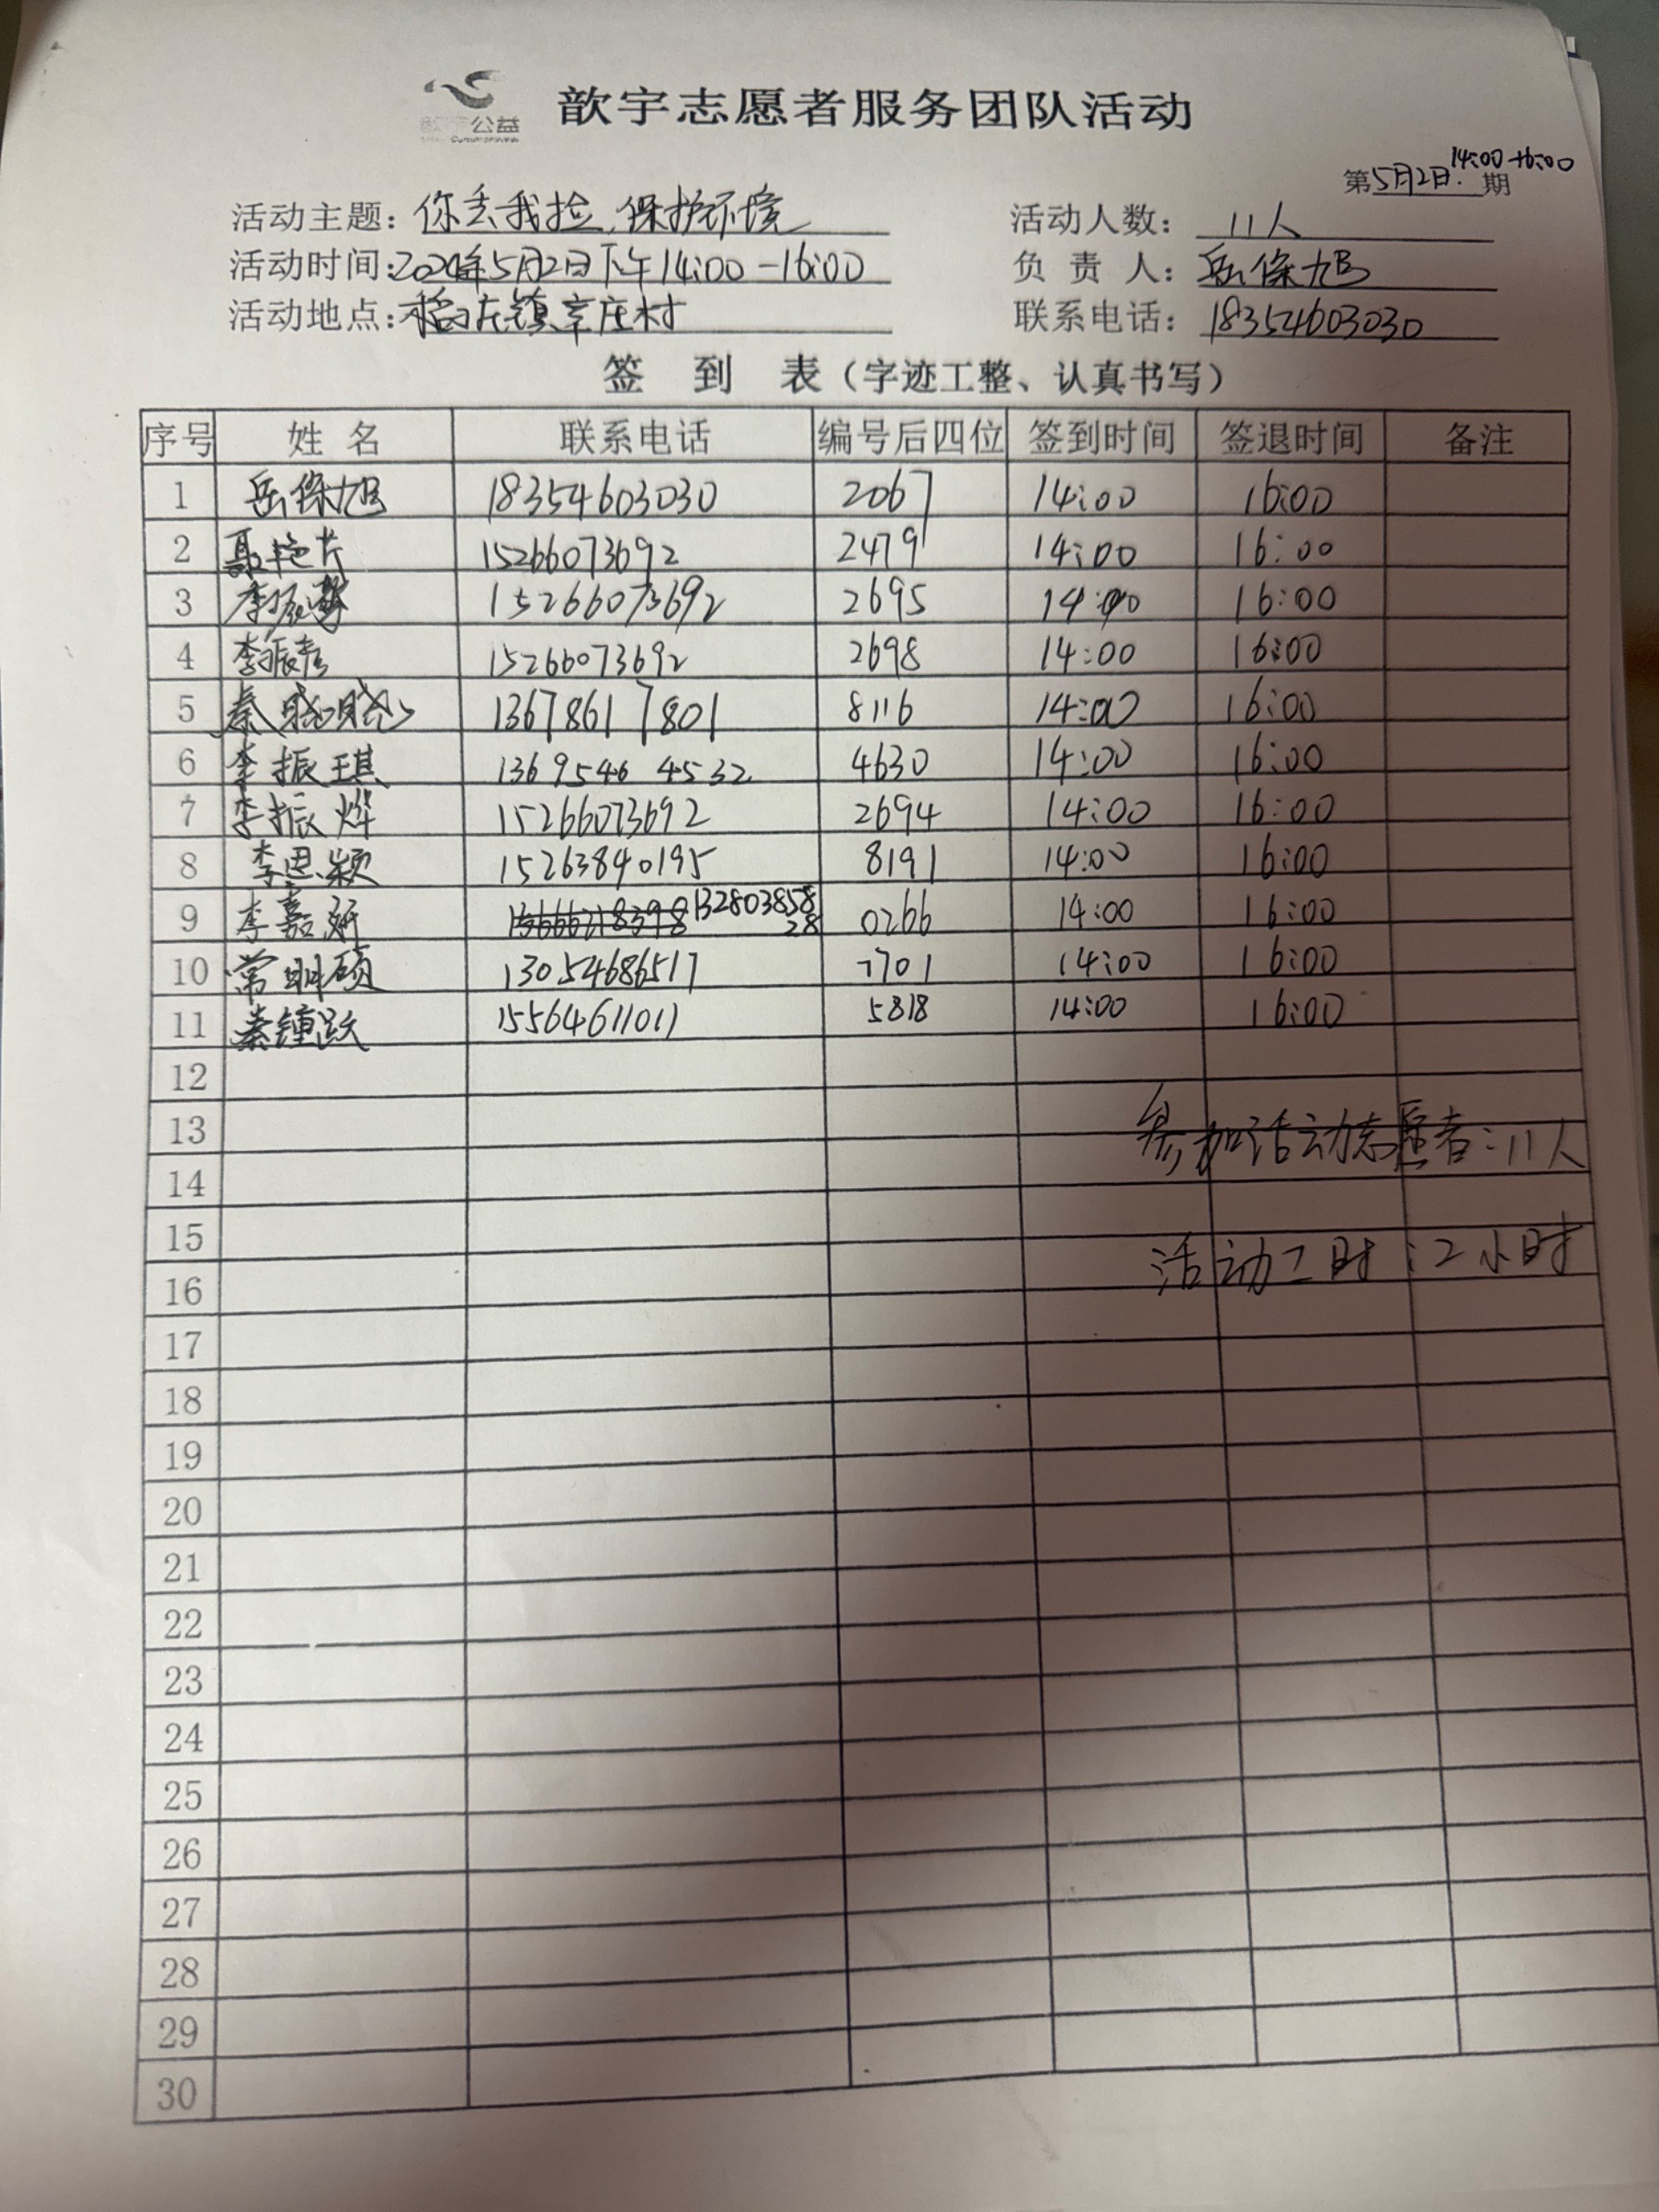 公益
歆宇志愿者服务团队活动
14:00-16:00
第5月2日.期
活动主题：你丢我捡，保护环境 活动人数：11人
活动时间：2024年5月2日下午14:00-16:00 负责人：岳保旭
活动地点：稻庄镇辛庄村 联系电话：18354603030
签 到 表（字迹工整、认真书写）
序号 姓名 联系电话 编号后四位 签到时间 签退时间 备注
1 岳保旭 18354603030 2067 14:00 16:00
2 聂艳芹 15266073692 2479 14:00 16:00
3 李振 15266073692 2695 14:00 16:00
4 李振彦 15266073692 2698 14:00 16:00
5 秦晓晓 13678617801 8116 14:00 16:00
6 李振琪 13695464532 4630 14:00 16:00
7 李振烨 15266073692 2694 14:00 16:00
8 李思颖 15263840195 8191 14:00 16:00
9 李嘉妍 13280385828 0266 14:00 16:00
10 常明硕 13054686517 7701 14:00 16:00
11 秦钟跃 15564611011 5818 14:00 16:00
12
13 参加活动志愿者：11人
14
15
16 活动工时：2小时
17
18
19
20
21
22
23
24
25
26
27
28
29
30